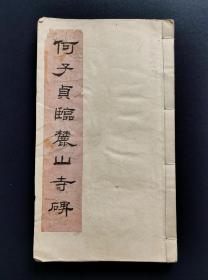 何子貞臨麓山寺碑